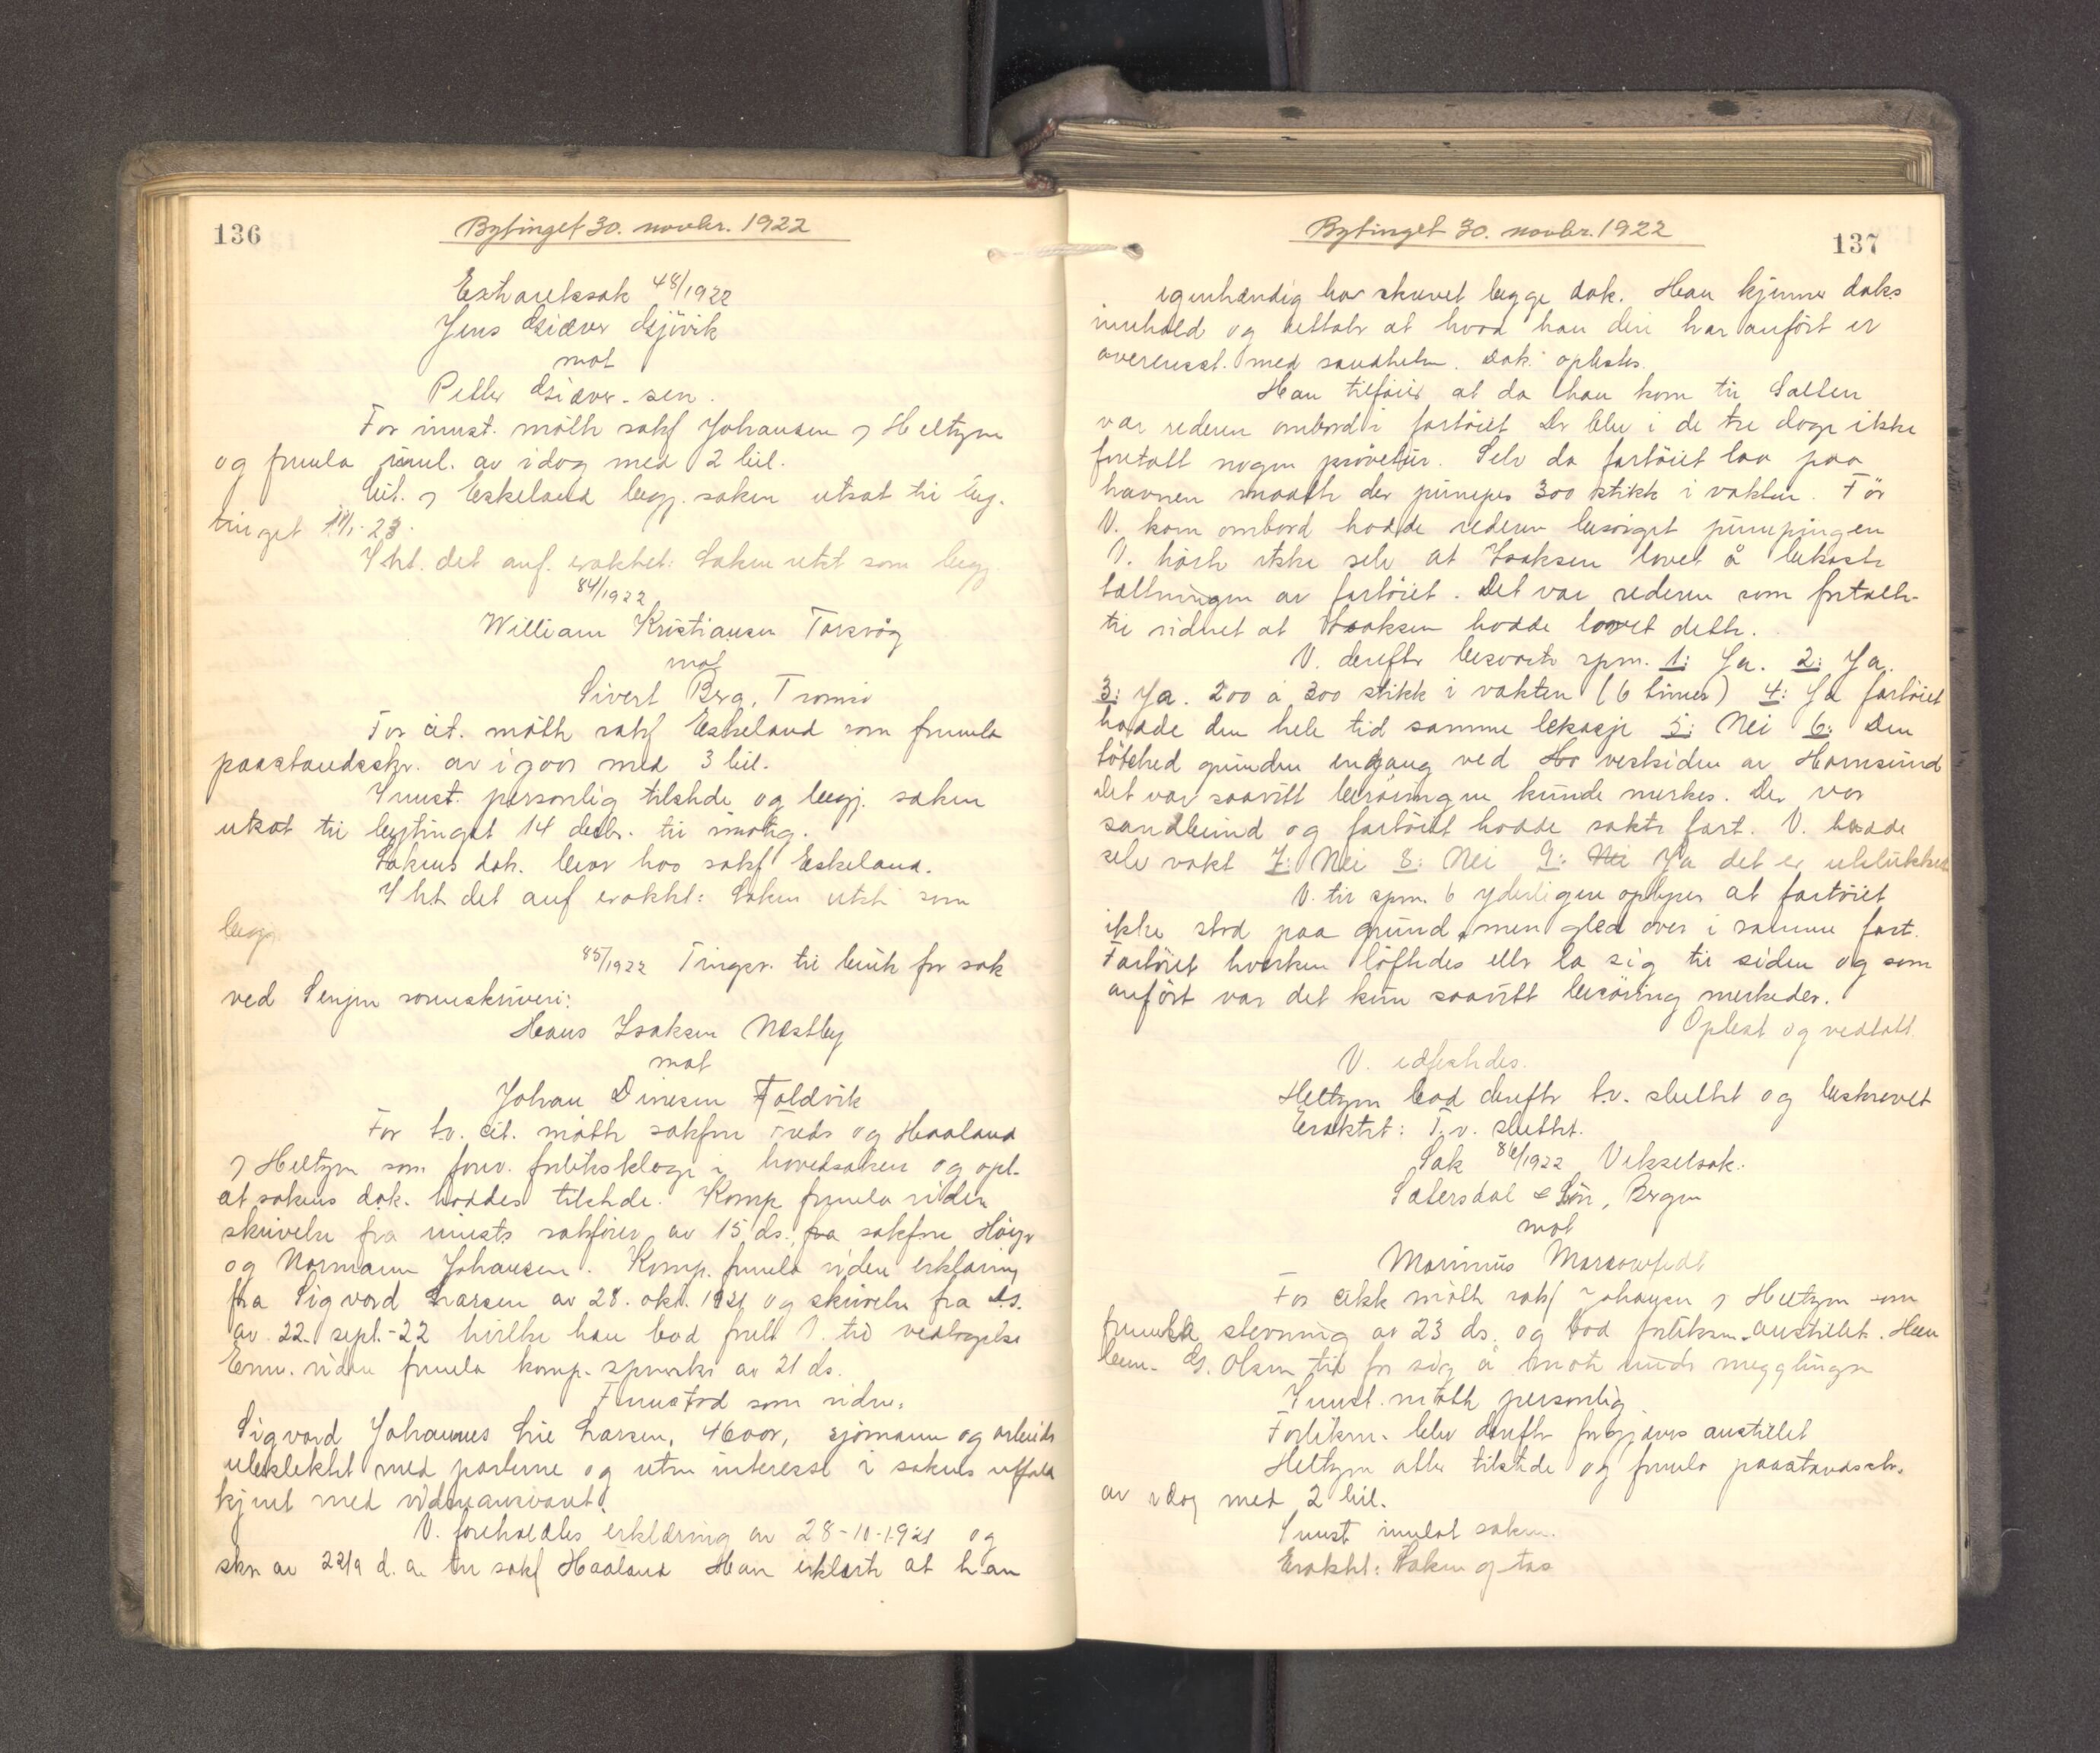 136
Bytinget 30. novbr. 1922
Extraretssak 48/1922
Jens Giæver Gjövik
mot
Petter Giæver sen.
For innst. mötte sakf Johansen v Heltzen
og fremla innl. av idag med 2 bil.
Cit. v Eskeland begj. saken utsat til by-
tinget 11/1-23.
I ht. det anf. eraktet: Saken utst som begj.
84/1922
William Kristiansen Torsvåg
mot
Sivert Bra, Tromsö
For cit. mötte sakf Eskeland som fremla
paastandsskr. av igaar med 3 bil.
Innst. personlig tilstede og begj. saken
utsat til bytinget 14 decbr. til imöteg.
Sakens dok. bever hos sakf Eskeland.
I ht det anf eraktet: Saken utst som
begj.
85/1922 Tingsv. til bruk for sak
ved Senjen sorenskriveri:
Hans Isaksen Nestby
mot
Johan Dinesen Foldvik
For tv. cit. mötte sakfne Freds og Haaland
v Heltzen som forev. forliksklage i hovedsaken og opl.
at sakens dok. haddes tilstede. Komp fremla viden
skrivelse fra innsts sakförer av 15 ds. fra sakfne Höyer
og Normann Johansen. Komp. fremla viden erklæring
fra Sigvard Larsen av 28. okt. 1921 og skrivelse fra ds.
av 22. sept.-22 hvilke han bad frelt V. til vedtagelse
Enn. viden fremla komp. spmskr av 21 ds.
Fremstod som vidne.
Sigvard Johannes Lie Larsen, 46 aar, sjömann og arbeider
ubeslektet med parterne og uten interesse i sakens utfald
kjent med vidneansvaret.
V. foreholdtes erklæring av 28-10-1921 og
skr. av 22/9 d. a. til sakf Haaland Han erklærte at han
137
Bytinget 30. novbr. 1922
egenhændig har skrevet begge dok. Han kjenner doks
innhold og vedtar at hvad han deri har anfört er
overensst. med sandheten. Dok. oplestes.
Han tilföier at da han kom til Salten
var rederen ombord i fartöiet Der blev i de tre dage ikke
foretatt nogen prövetur. Selv da fartöiet laa paa
havnen maatte der pumpes 300 stikk i vakten. För
V. kom ombord hadde rederen besörget pumpingen
V. hörte ikke selv at Isaksen lovet å bekoste
tættningen av fartöiet. Det var rederen som fortalte
til vidnet at Isaksen hadde lovet dette.
V. derefter besvarte spm. 1: Ja. 2: Ja.
3: Ja. 200 à 300 stikk i vakten (6 timer) 4: Ja fartöiet
hadde den hele tid samme lekasje 5: Nei 6: Den
tötched grunden engang ved Ho vestsiden av Hornsund
Det var saavitt beröringen kunde merkes. Der var
sandbund og fartöiet hadde sakte fart. V. hadde
selv vakt 7: Nei 8: Nei 9: Nei Ja det er utelukket
V. til spm. 6 yderligere oplyser at fartöiet
ikke stod paa grund, men gled over i samme fart.
Fartöiet hverken löftedes eller la sig til siden og som
anfört var det kun saavitt beröring merkedes.
Oplest og vedtatt.
V. edfestedes.
Heltzen bad derefter t.v. sluttet og beskrevet
Eraktet: T.v. sluttet.
Sak 86/1922 Vekselsak.
Sætersdal & Sön, Bergen
mot
Marinius
For citk mötte sakf Johansen v Heltzen som
fremla stevning av 23 ds. og bad forliksm. anstillet. Han
bem. G. Olsen til for sig å möte under meglingen
Innst. mötte personlig
Forliksm. blev derefter forgjæves anstillet
Heltzen atter tilstede og fremla paastandsskr.
av idag med 2 bil.
Innst innlot saken.
Eraktet: Saken optas